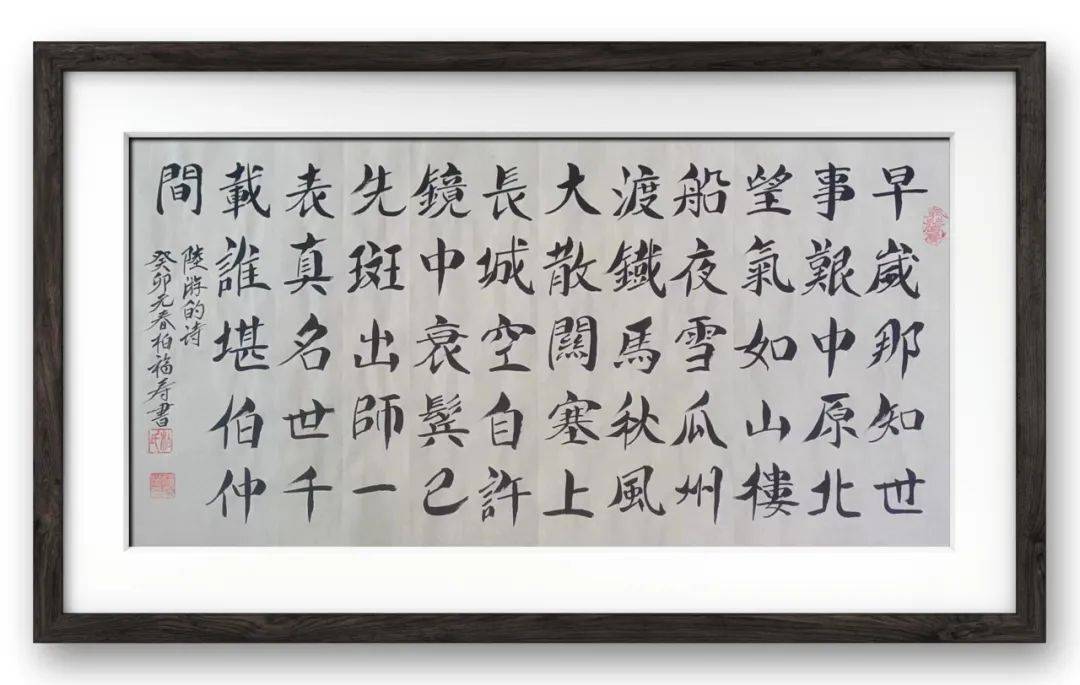 早歲那知世
事艱中原北
望氣如山樓
船夜雪瓜州
渡鐵馬秋風
大散關塞上
長城空自許
鏡中衰鬂已
先斑出師一
表真名世千
載誰堪伯仲
間
陸游的诗
癸卯元春柏福寿書